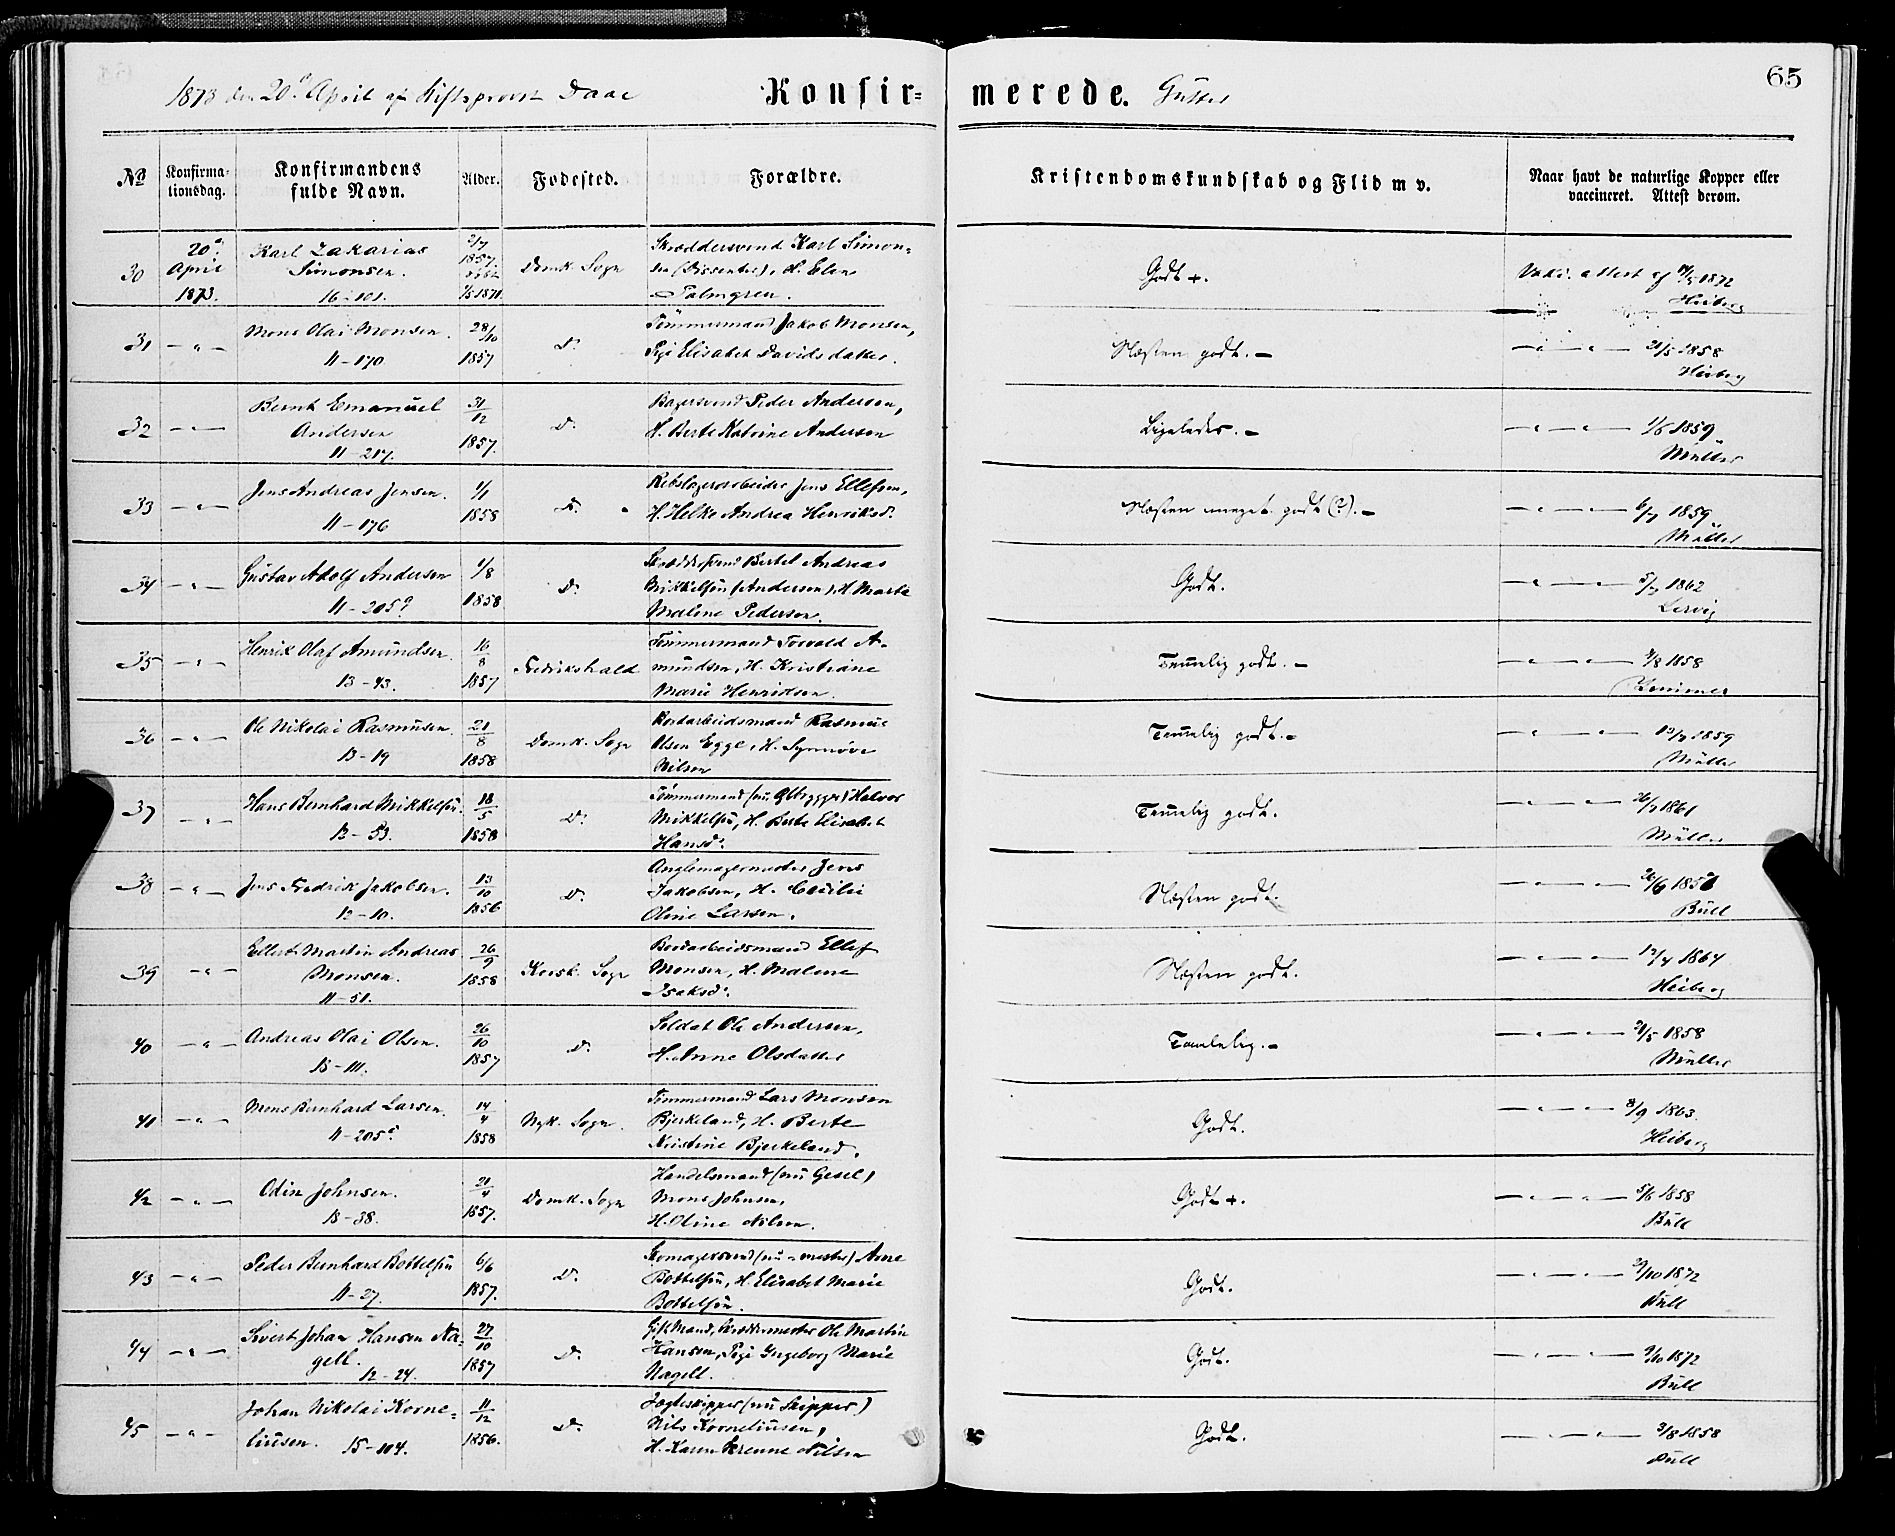 65
1873 den 20d April af Stiftsprovst Daae Konfir= merede. Gutter
No Konfirma- tionsdag. Konfirmandens fulde Navn. Alder. Fødested. Forældre. Kristendomskundskab og Flid m v. Naar havt de naturlige Kopper eller vaccineret. Attest derom.
30 20d April 1873. Karl Zakarias Simonsen. 16-101. 2/7 1857. 1/5 1871. Domk. Sogn Skræddersvend Karl Simon= sen (Dissenter), H. Elen Palmgren. Godt +. Vakc. attest af 1872 Heiberg
31 -"- Mons Olai Monsen. 11-170 28/10 1857 D. Tømmermand Jakob Monsen, Pige Elisabet Davidsdatter. Næsten godt. - -"-"- 21/5 1858 Heiberg
32 -"- Bernt Emanuel Andersen 11-217. 31/12 1857. D. Bagersvend Peder Andersen, H. Berte Katrine Andersen Ligeledes. - -"-"- 1/6 1859 Müller
33 -"- Jens Andreas Jensen. 11-176 1/1 1858 D. Rebslagerarbeider Jens Ellefsen, H. Helke Andrea Henriksd. Næsten meget godt (?). - -"-"- 6/7 1859 Müller
34 -"- Gustav Adolf Andersen 11-205a 1/8 1858 D. Bertel Andreas Mikkelsen (Andersen), H. Marte Malene Pedersen. Godt. -"-"- 5/7 1862 Lervig
35 -"- Henrik Olaf Amundsen. 13-43. 16/8 1857 Fredrikshald Tømmermand Torvald A- mundsen, H. Kristiane Marie Henriksen. Temmelig godt. - -"-"- 9/8 1858
36 -"- Ole Nikolai Rasmusen. 13-19 21/8 1858 Domk. Sogn Rasmus Olsen Egge, H. Synnøve Nilsen Temmelig godt. - -"-"- 13/7 1859 Müller
37 -"- Hans Bernhard Mikkelsen. 12-53. 18/5 1858 D. Tømmermand (nu Ølbrygger) Halvor Mikkelsen, H. Berte Elisabet Hansd. Temmelig godt. -"-"- 26/7 1861 Müller
38 -"- Jens Fredrik Jakobsen. 12-10. 13/10 1856 D. Anglemagermester Jens Jakobsen, H. Cecilie Oline Larsen. Næsten godt. -"-"- 26/6 1857 Bull
39 -"- Ellert Martin Andreas Monsen. 11-51. 26/9 1858 Korsk. Sogn Ellef Monsen, H. Malene Isaksd. Næsten godt. -"-"- 12/4 1864 Heiberg
40 -"- Andreas Olai Olsen. 15-111. 26/10 1857 D. Soldat Ole Andersen, H. Anne Olsdatter Temmelig. - -"-"- 21/5 1858 Müller
41 -"- Mons Bernhard Larsen. 11-205c 14/4 1858 Nyk. Sogn. Tømmermand Lars Monsen Bjerkeland, H. Berte Kristine Bjerkeland. Godt. -"-"- 8/9 1863. Heiberg
42 -"- Odin Johnsen. 15-38. 21/4 1857. Domk. Sogn Handelsmand (nu Gesel) Mons Johnsen, H. Oline Nilsen. Godt +. -"-"- 5/6 1858 Bull
43 -"- Peder Bernhard Bottelsen 11-27. 6/6 1857. D. Skomagersvend (nu -mester) Arne Bottelsen, H. Elisabet Marie Bottelsen. Godt. -"-"- 29/10 1872 Bull
44 -"- Sivert Johan Hansen Na- gell. 12-24. 27/10 1857 D. Gift Mand, Skræddermester Ole Martin Hansen, Pige Ingeborg Marie Nagell. Godt. -"-"- 9/10 1872 Bull
45 -"- Johan Nikolai Korne= liusen. 15-104. 11/12 1856. D. Jagteskipper (nu Skipper) Nils Korneliusen, H. Karen Nilsen Godt. -"-"- 3/8 1858 Bull